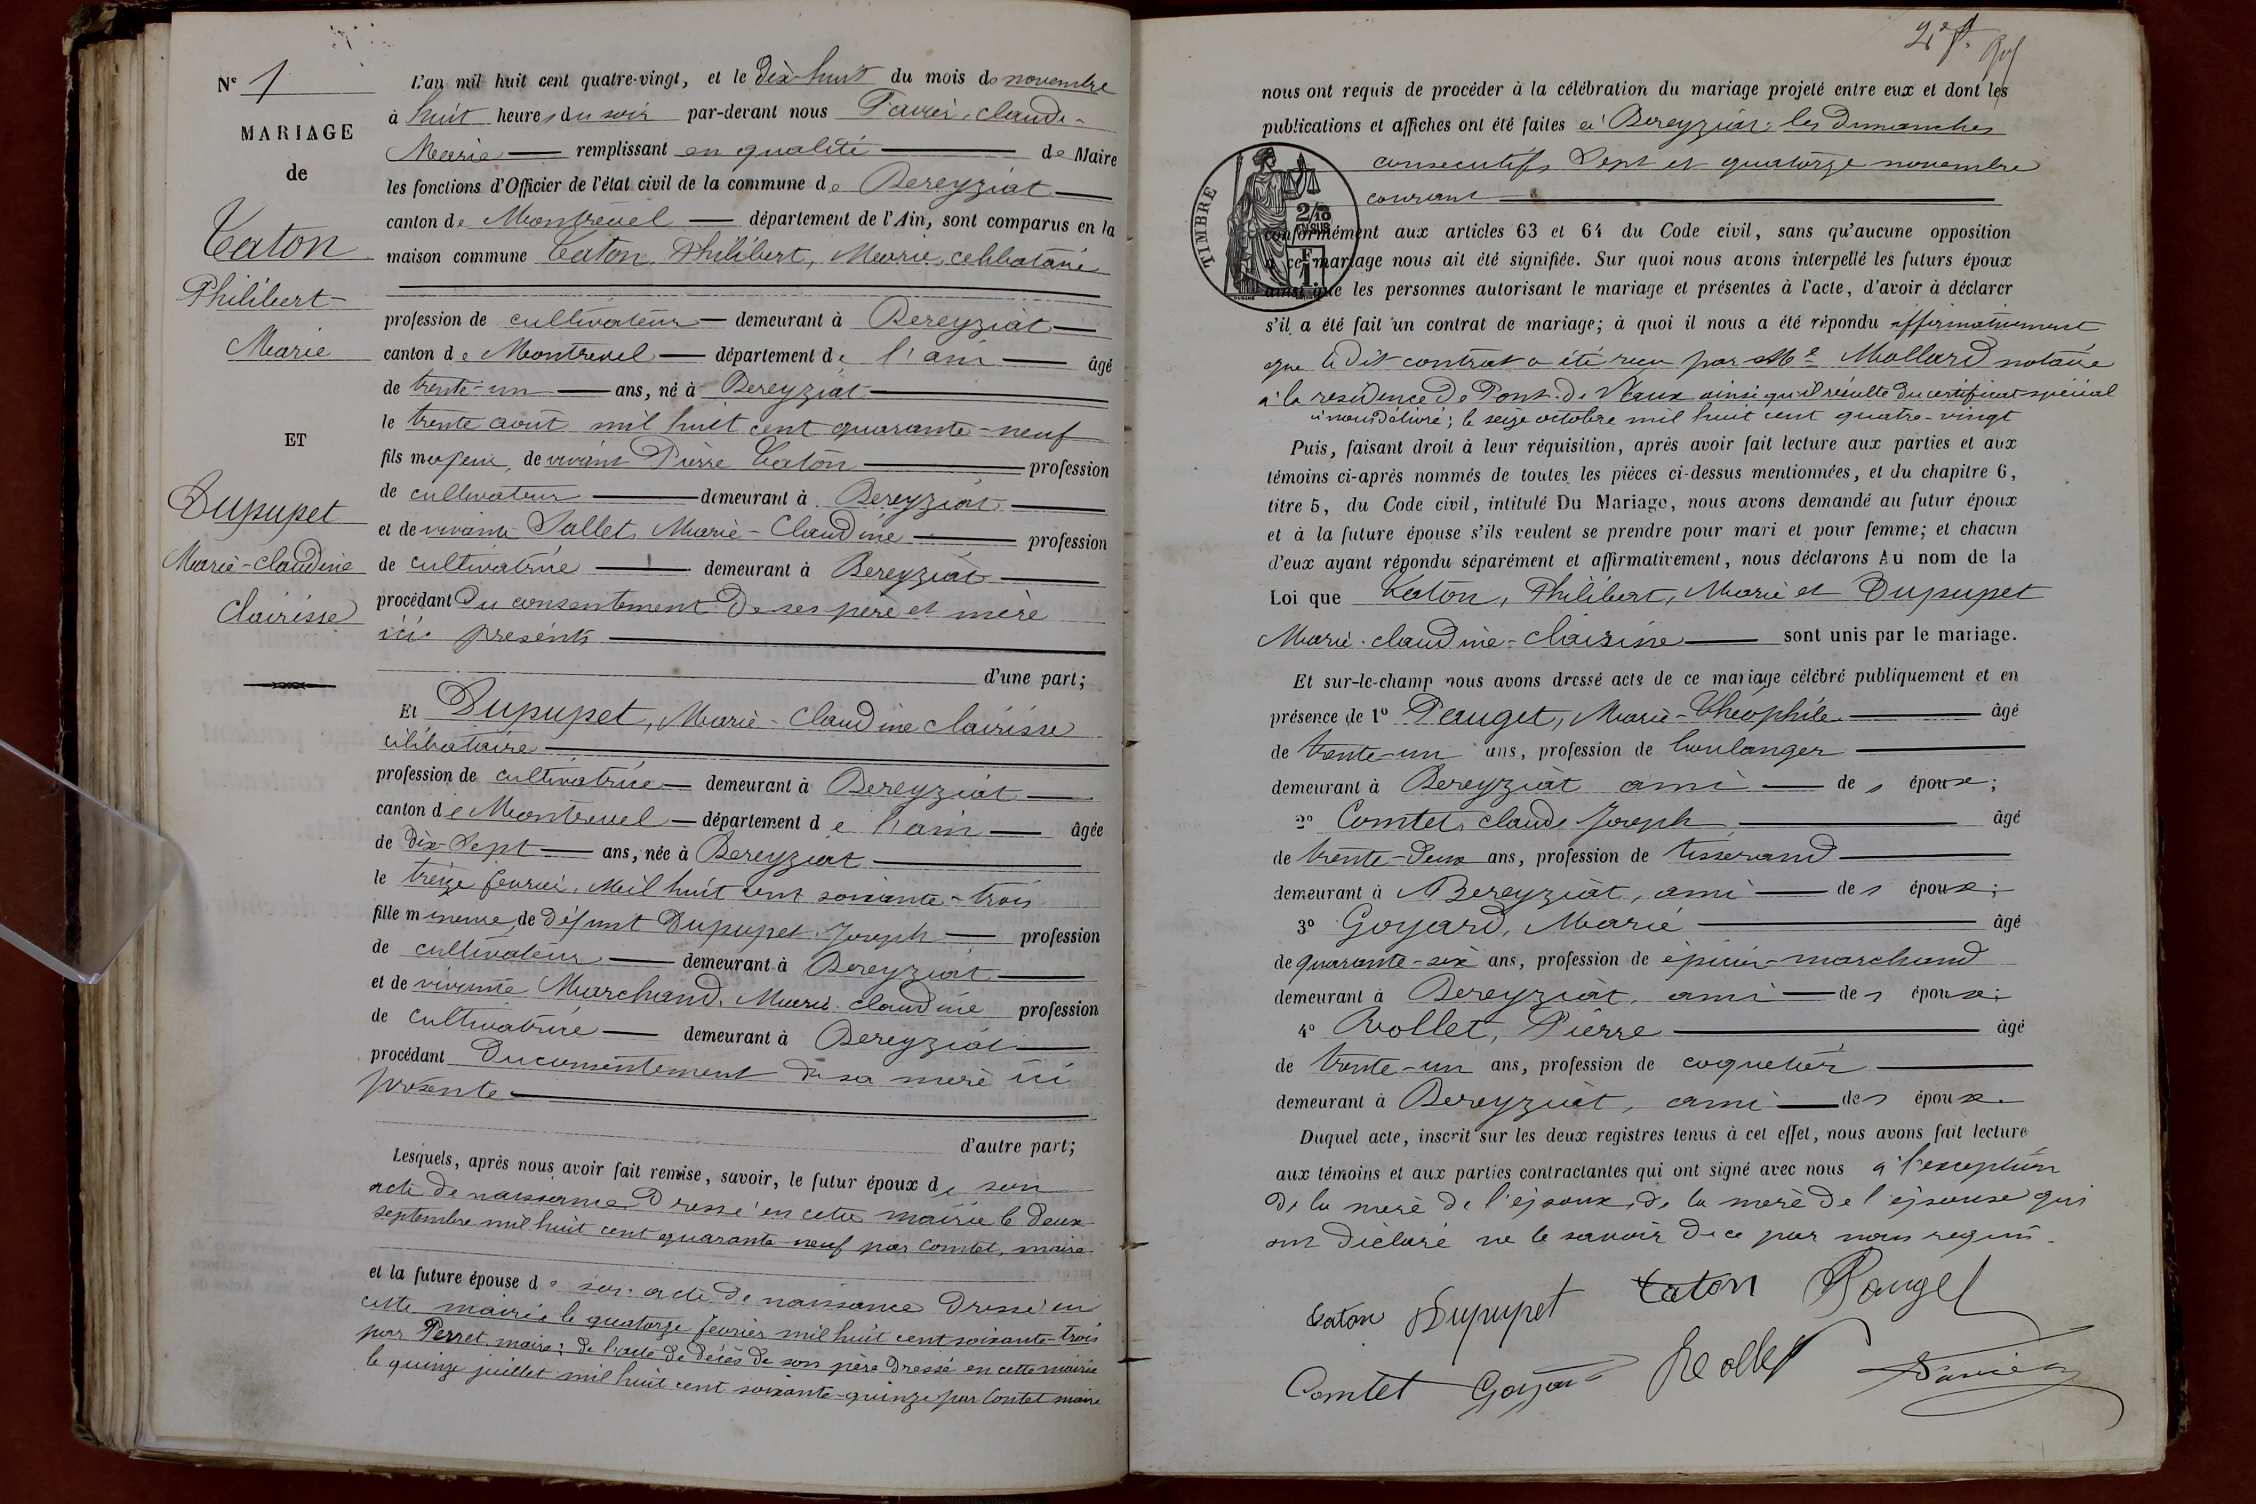 N° 1
MARIAGE
de
Caton
Philibert-
Marie
ET
Dupupet
Marie-Claudine
Clairisse
L'an mil huit cent quatre-vingt, et le Dix-huit du mois de novembre
à huit heures du soir par-devant nous Claude-
Marie remplissant en qualité de Maire
les fonctions d'Officier de l'état civil de la commune de Bereyziat
canton de Montrevel département de l'Ain, sont comparus en la
maison commune Caton, Philibert, Marie, celibataire
profession de cultivateur demeurant à Bereyziat
canton de Montrevel département de l'ain âgé
de trente-un ans, né à Bereyziat
le trente août mil huit cent quarante-neuf
fils majeur, de vivant Pierre Caton profession
de cultivateur demeurant à Bereyziat
et de vivante Sallet, Marie-Claudine profession
de cultivatrice demeurant à Bereyziat
procédant du consentement de ses père et mère
ici présents
d'une part;
Et Dupupet, Marie-Claudine Clairisse
célibataire
profession de cultivatrice demeurant à Bereyziat
canton de Montrevel département de l'ain âgée
de Dix-Sept ans, née à Bereyziat
le treize fevrier, Mil huit cent soixante-trois
fille mineure, de défunt Dupupet Joseph profession
de cultivateur demeurant à Bereyziat
et de vivante Marchand, Marie Claudine profession
de cultivatrice demeurant à Bereyziat
procédant Du consentement de sa mère ici
présente
d'autre part;
Lesquels, après nous avoir fait remise, savoir, le futur époux de son
acte de naissance Dressé en cette mairie le Deux
septembre mil huit cent quarante-neuf par Comtet, maire
et la future épouse de son acte de naissance Dressé en
cette mairie le quatorze fevrier mil huit cent soixante-trois
par Perret, maire; de l'acte de décès de son père Dressé en cette mairie
le quinze juillet mil huit cent soixante-quinze par Contet maire
nous ont requis de procéder à la célébration du mariage projeté entre eux et dont les
publications et affiches ont été faites à Bereyziat, les Dimanches
consecutifs Sept et quatorze novembre
courant
TIMBRE
2/10 EN SUS
1 F.
conformément aux articles 63 et 64 du Code civil, sans qu'aucune opposition
à ce mariage nous ait été signifiée. Sur quoi nous avons interpellé les futurs époux
ainsi que les personnes autorisant le mariage et présentes à l'acte, d'avoir à déclarer
s'il a été fait un contrat de mariage; à quoi il nous a été répondu affirmativement
que le dit contrat a été reçu par Me Mollard notaire
à la résidence de Pont-de-Vaux ainsi qu'il résulte du certificat spécial
à nous délivré; le seize octobre mil huit cent quatre-vingt
Puis, faisant droit à leur réquisition, après avoir fait lecture aux parties et aux
témoins ci-après nommés de toutes les pièces ci-dessus mentionnées, et du chapitre 6,
titre 5, du Code civil, intitulé Du Mariage, nous avons demandé au futur époux
et à la future épouse s'ils veulent se prendre pour mari et pour femme; et chacun
d'eux ayant répondu séparément et affirmativement, nous déclarons Au nom de la
Loi que Caton, Philibert, Marie et Dupupet
Marie-Claudine-Clairisse sont unis par le mariage.
Et sur-le-champ nous avons dressé acte de ce mariage célébré publiquement et en
présence de 1° Pauget, Marie-Théophile âgé
de trente-un ans, profession de boulanger
demeurant à Bereyziat ami des époux;
2° Comtet, Claude Joseph âgé
de trente-deux ans, profession de tisserand
demeurant à Bereyziat, ami des époux;
3° Goyard, Marie âgé
de quarante-six ans, profession de épicier-marchand
demeurant à Bereyziat, ami des époux;
4° Rollet, Pierre âgé
de trente-un ans, profession de coquetier
demeurant à Bereyziat, ami des époux.
Duquel acte, inscrit sur les deux registres tenus à cet effet, nous avons fait lecture
aux témoins et aux parties contractantes qui ont signé avec nous à l'exception
de la mère de l'époux, de la mère de l'épouse qui
ont déclaré ne le savoir de ce par nous requis.
Caton Dupupet Caton Pauget
Comtet Goyard Rollet